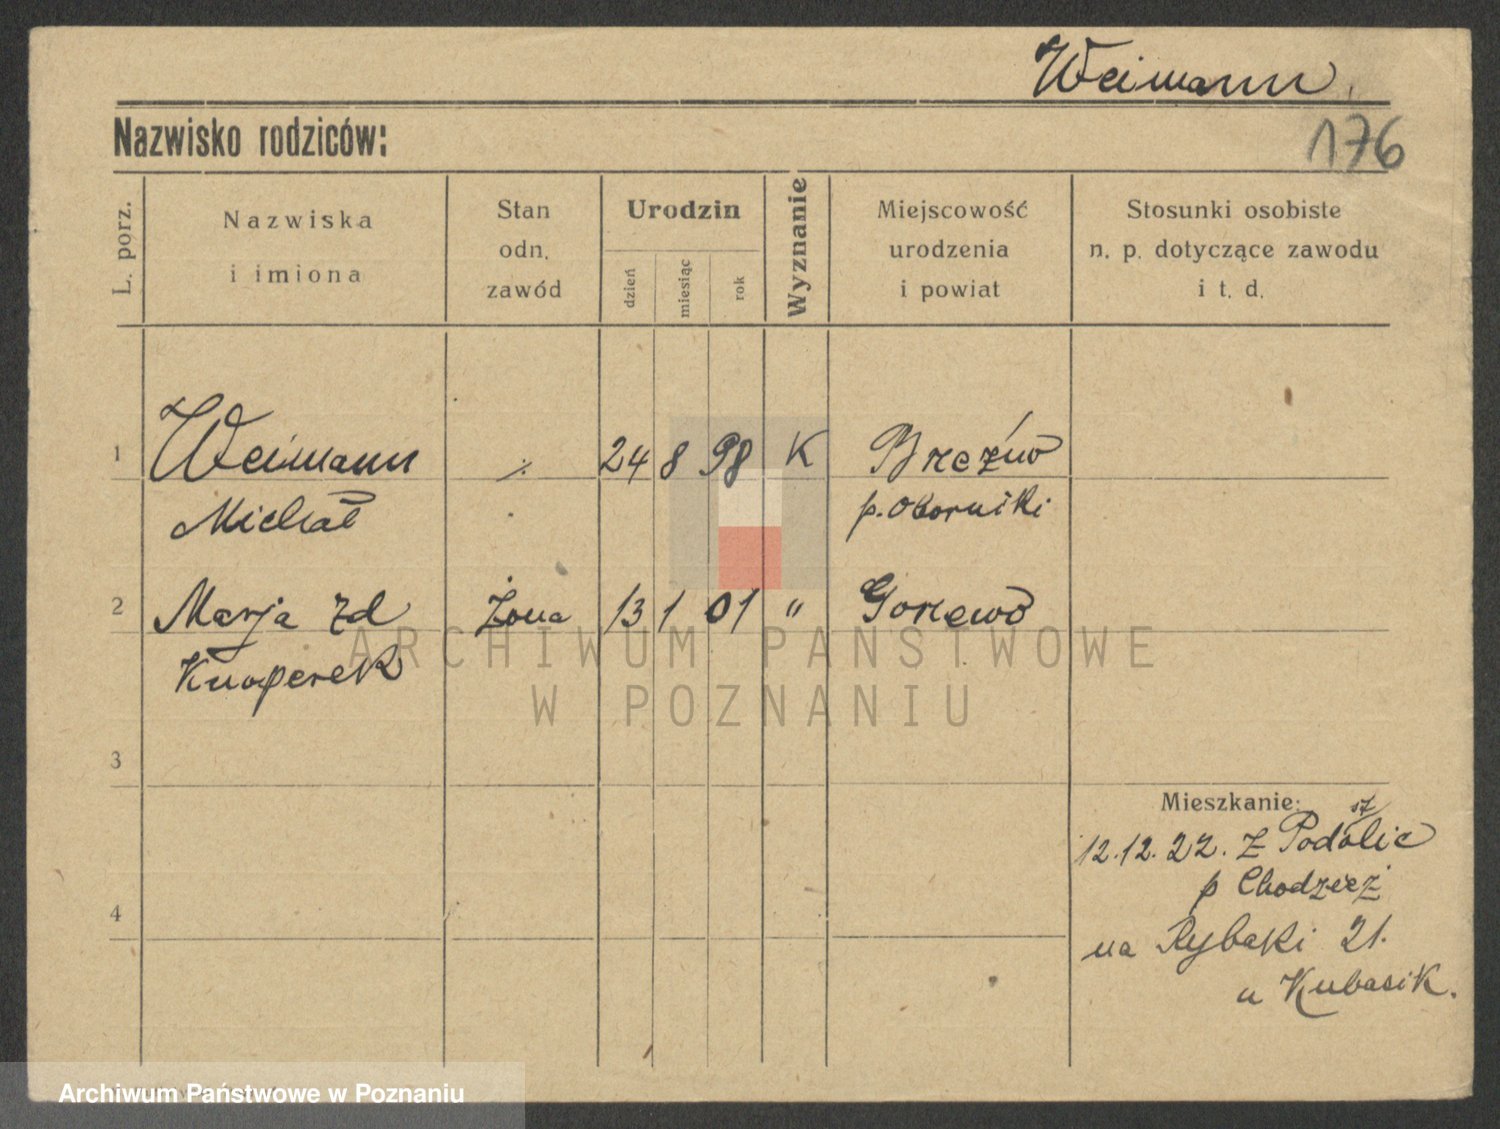 Weimann.
Nazwisko rodziców:
176
L. porz.
Nazwiska
i imiona
Stan
odn.
zawód
Urodzin
dzień
miesiąc
rok
Wyznanie
Miejscowość
urodzenia
i powiat
Stosunki osobiste
n. p. dotyczące zawodu
i t. d.
1 Weimann ./. 24 8 98 K Brzeźno
Michał p. Oborniki
2 Marja zd Żona 13 1 01 " Gorzewo
3
4
Mieszkanie:
12.12.22. z Podstolic
p Chodzież
na Rybaki 21.
u Kubasik.
ARCHIWUM PAŃSTWOWE
W POZNANIU
Archiwum Państwowe w Poznaniu